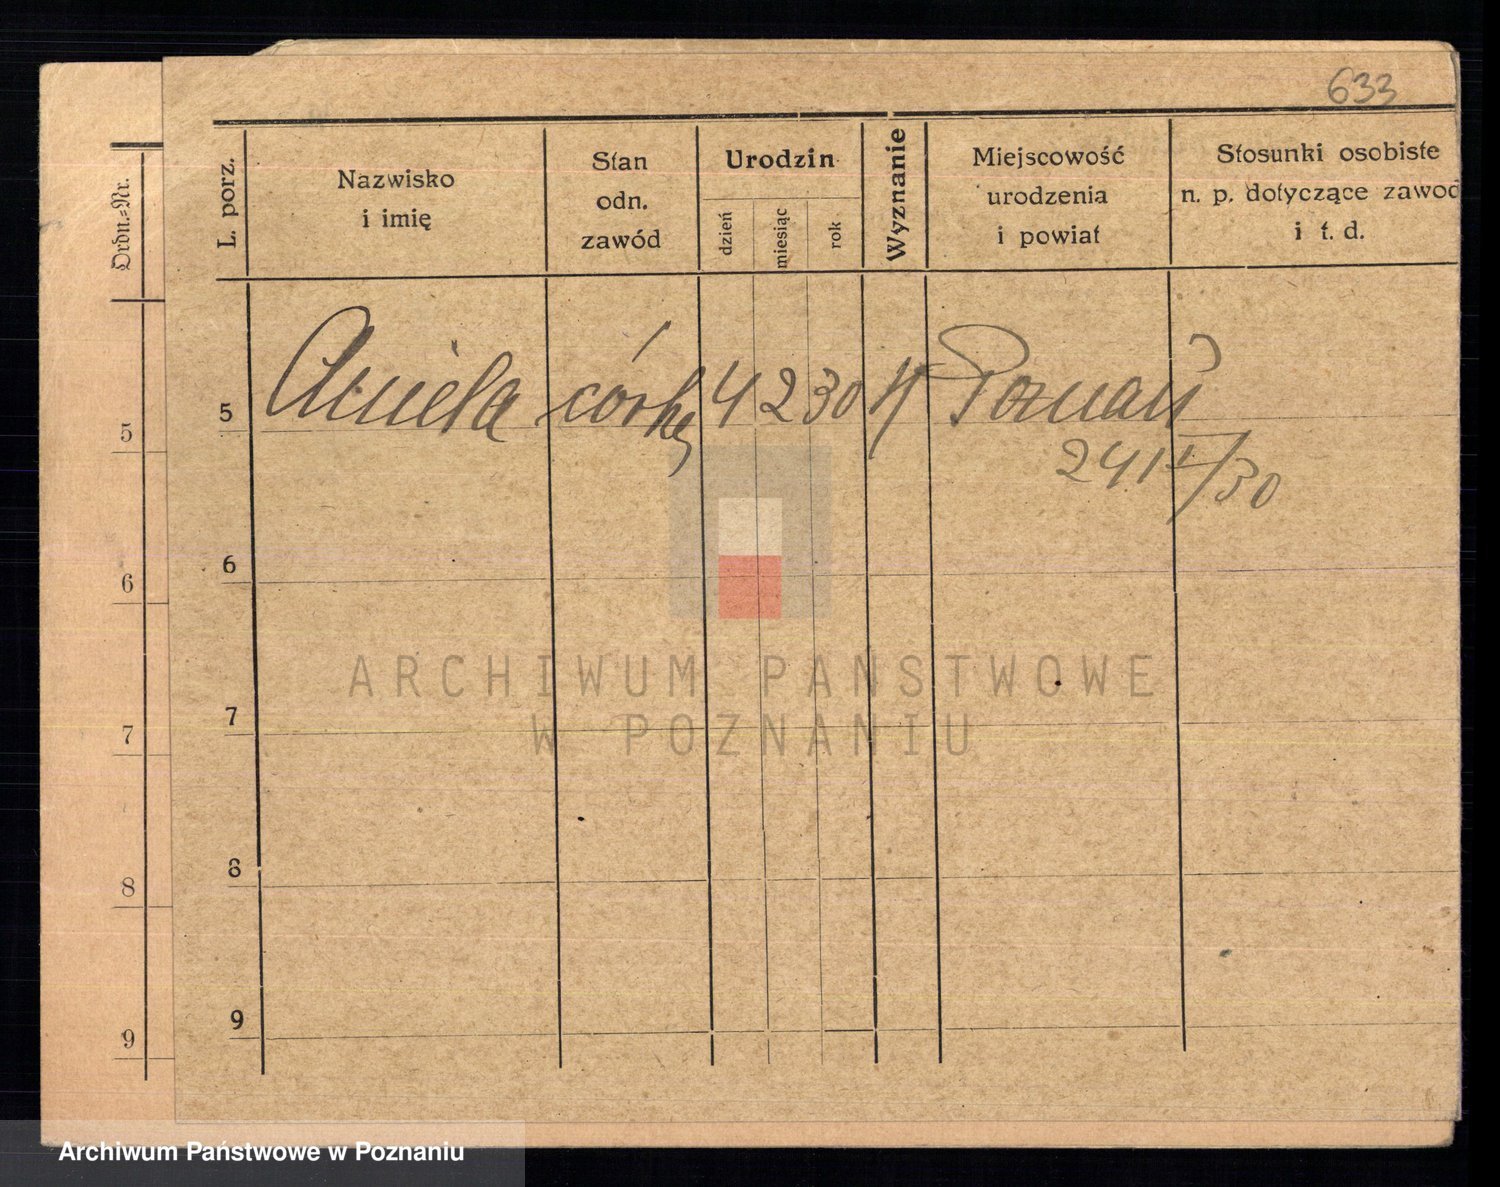 633
Ordn.=Nr.
L. porz.
Nazwisko
i imię
Stan
odn.
zawód
Urodzin
dzień
miesiąc
rok
Wyznanie
Miejscowość
urodzenia
i powiat
Stosunki osobiste
n. p. dotyczące zawod
i t. d.
5
5 Aniela córka 4 2 30 K Poznań
6
6
7
7
8
8
9
9
ARCHIWUM PAŃSTWOWE
W POZNANIU
Archiwum Państwowe w Poznaniu